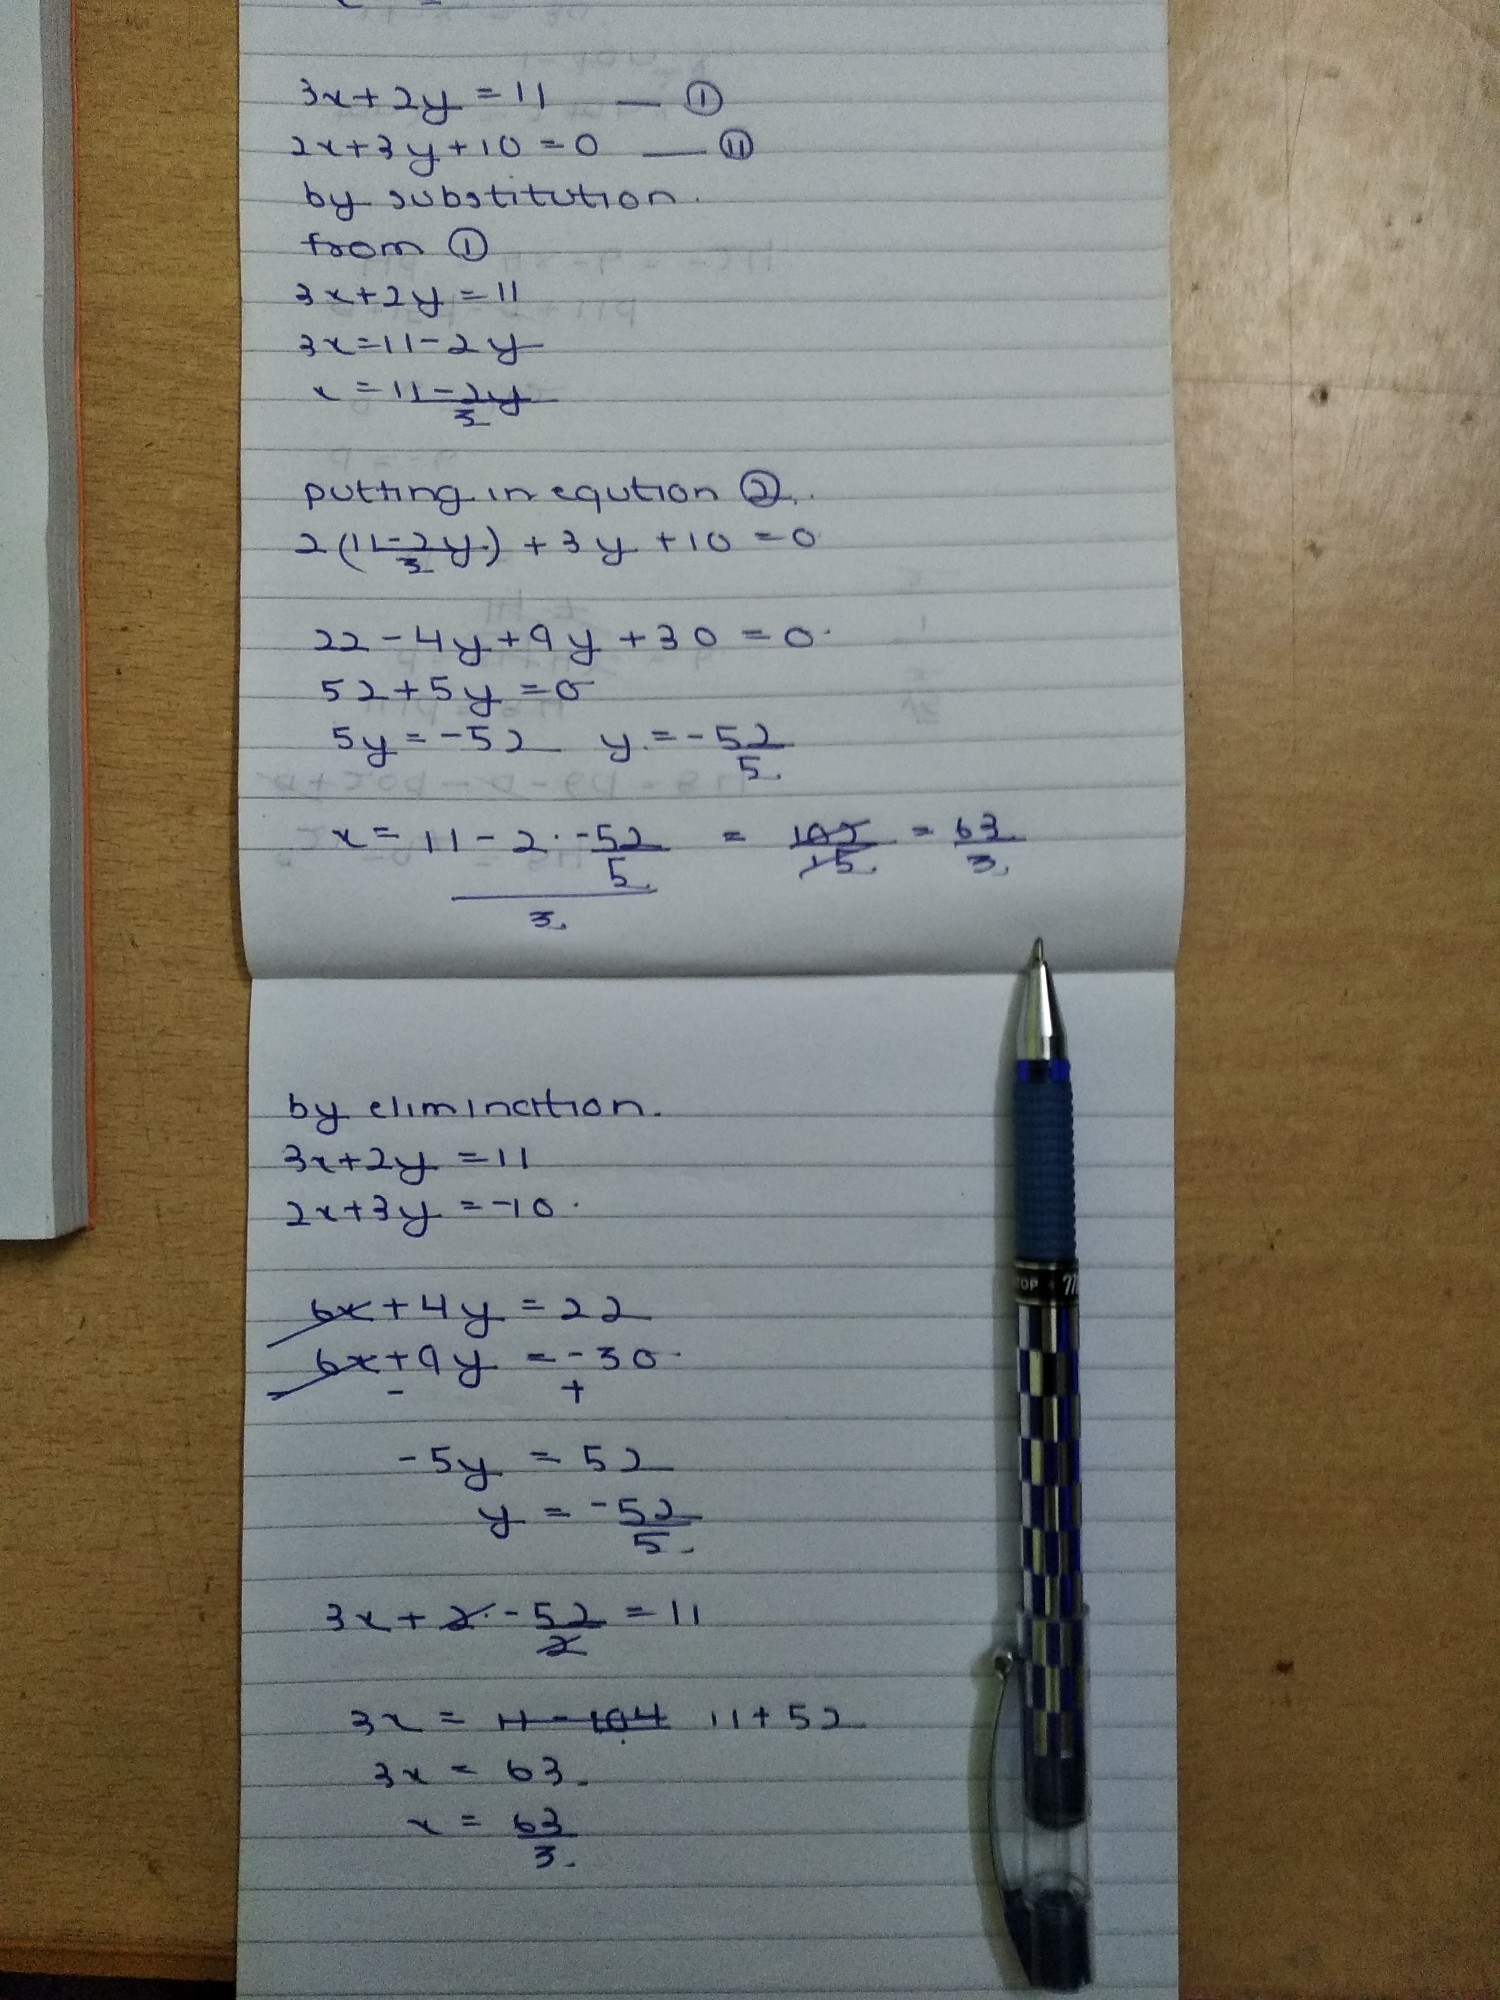 3x+2y=11 — ①
2x+3y+10=0 — ⑪
by substitution.
from ①
3x+2y=11
3x=11-2y
x=11-2y/3
putting in eqution ②.
2(11-2y/3)+3y+10=0
22-4y+9y+30=0.
52+5y=0
5y=-52 y=-52/5.
x=11-2.-52/5/3. = 105/15. = 63/3.
by elimination.
3x+2y=11
2x+3y=-10.
6x+4y=22
6x+9y=-30.
- +
-5y=52
y=-52/5.
3x+2.-52/2=11
3x=11-104 11+52
3x=63.
x=63/3.
TOP